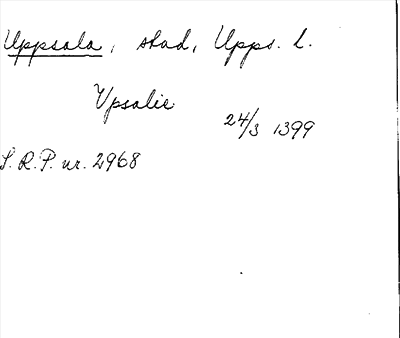 Uppsala, stad, Upps. l.
Vpsalie
24/3 1399
S.R.P. nr. 2968